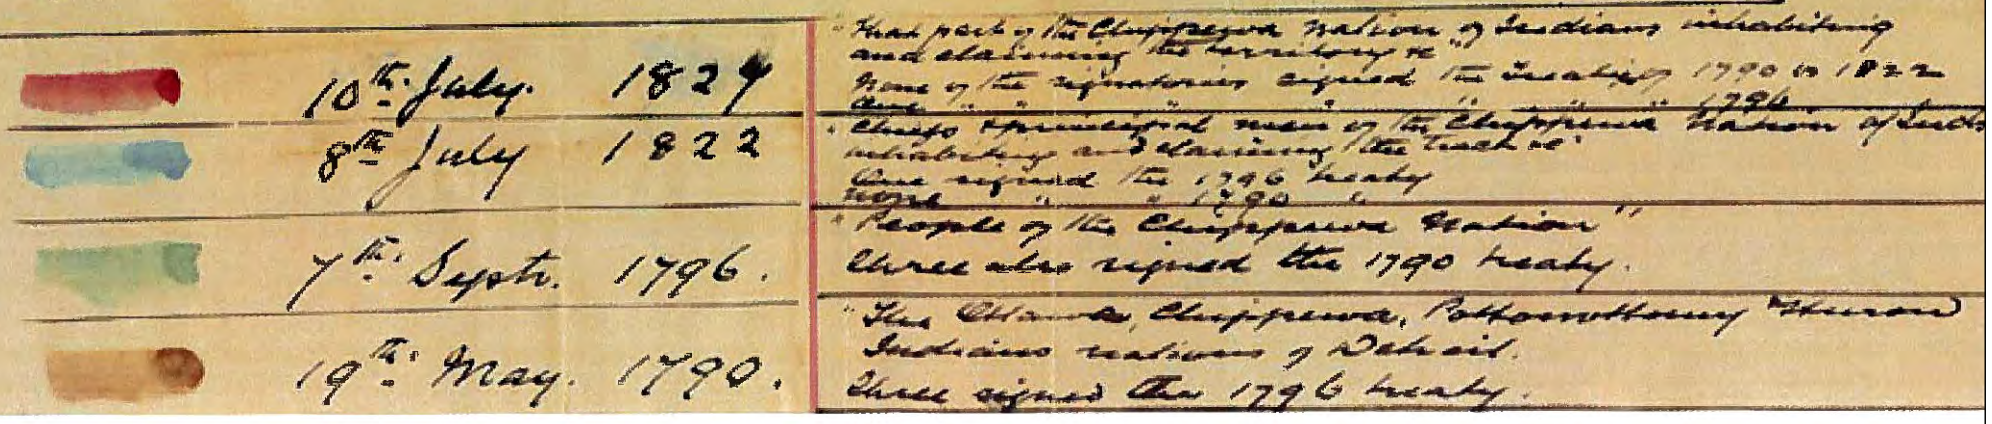 10th. July. 1827
"That part of the Chippewa Nation of Indians inhabiting
and claiming the territory &c"
None of the signatories signed the Treaties of 1790 or 1822
One " " " " " " " 1796
8th July 1822
"Chiefs & principal men of the Chippewa Nation of Inds
inhabiting and claiming the tract &c"
One signed the 1796 treaty
None " " 1790 "
7th. Septr. 1796.
"People of the Chippewa Nation"
Three also signed the 1790 treaty.
19th. May. 1790.
"The Ottawa, Chippewa, Pottomottomy & Huron
Indians nations of Detroit.
Three signed the 1796 treaty.